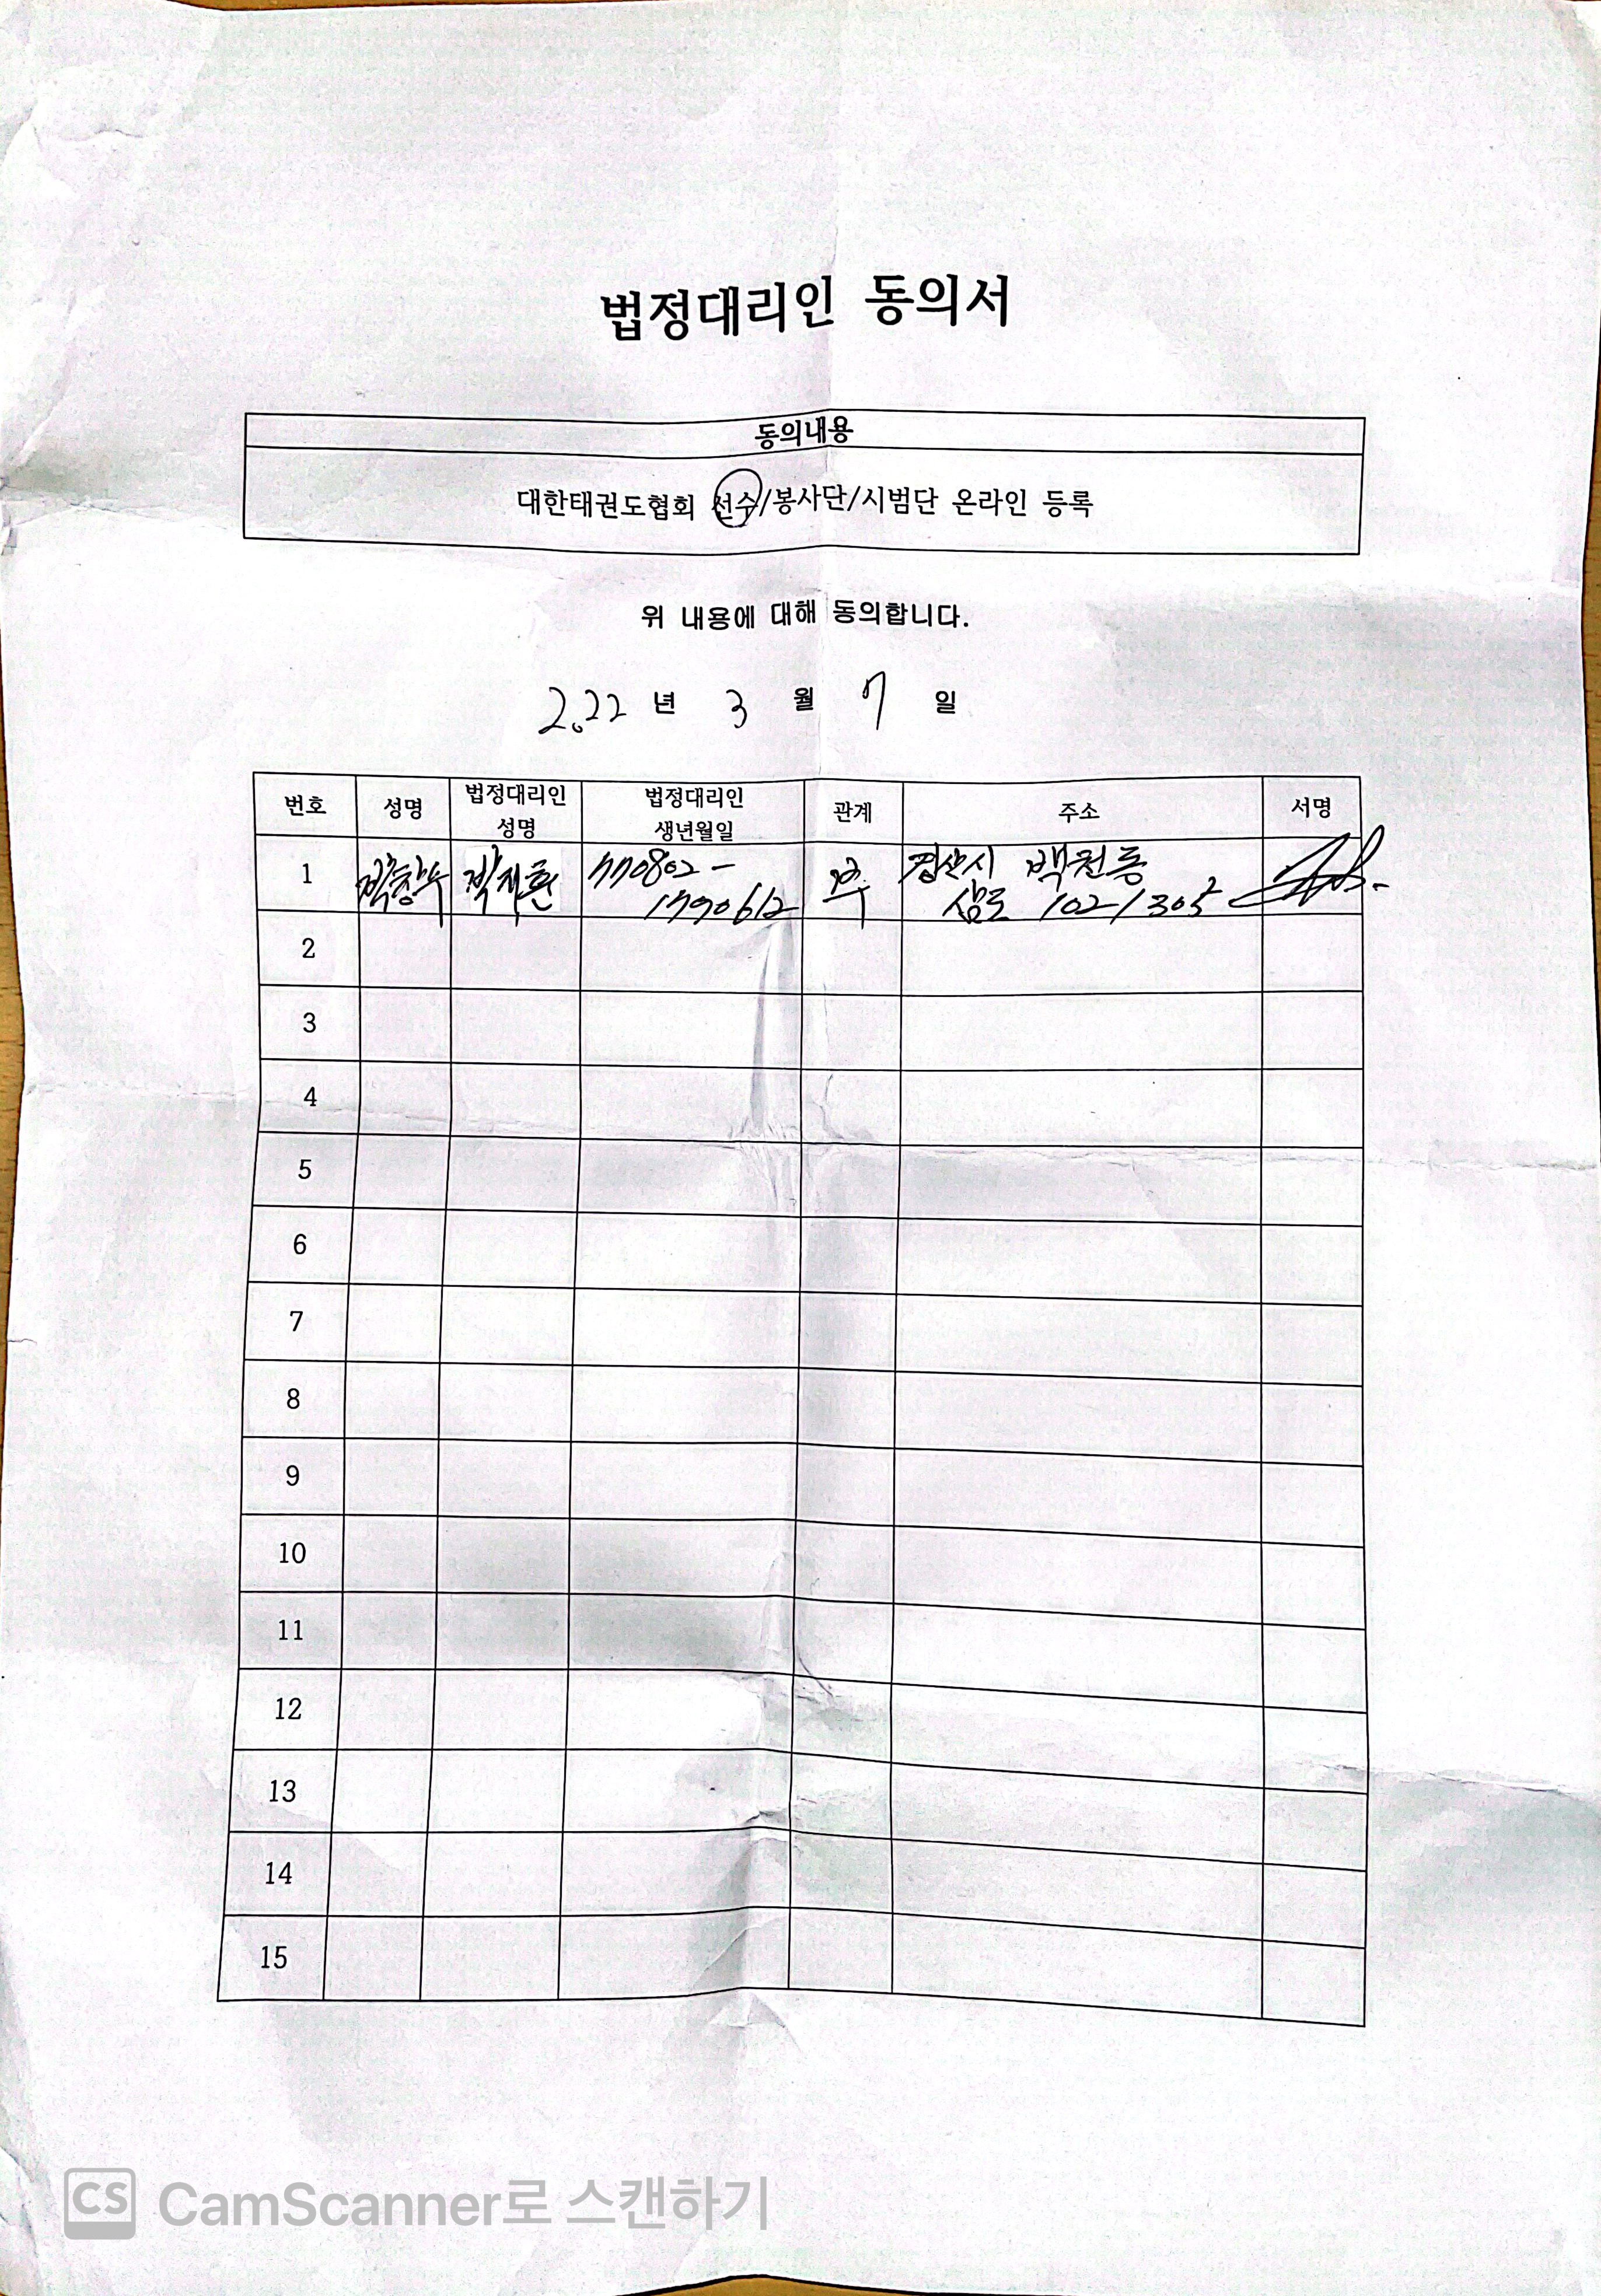 법정대리인 동의서
동의내용
대한태권도협회 선수/봉사단/시범단 온라인 등록
위 내용에 대해 동의합니다.
2022 년 3 월 7 일
번호 성명 법정대리인 성명 법정대리인 생년월일 관계 주소 서명
1 770802- 부 경산시 백천동
1790612 삼도 102/305
2
3
4
5
6
7
8
9
10
11
12
13
14
15
CS CamScanner로 스캔하기